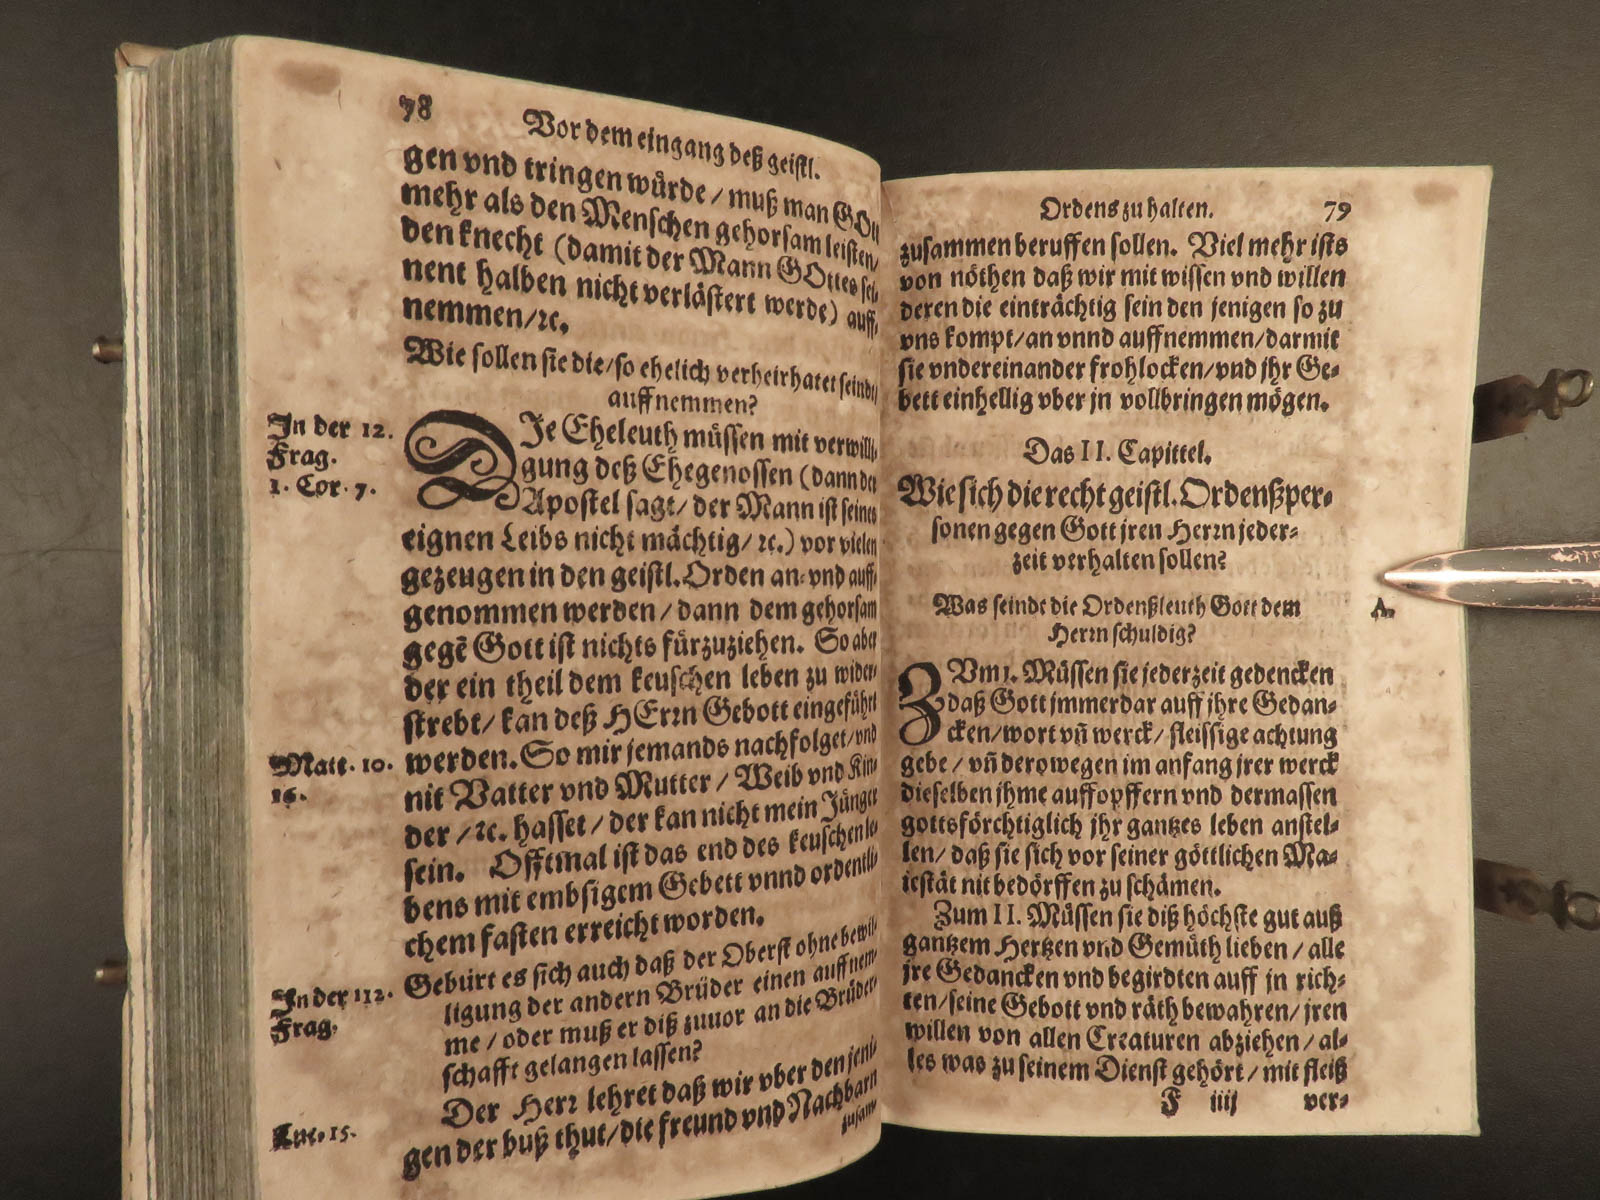 78
Vor dem eingang deß geistl.
gen vnd tringen würde / muß man GOtt
mehr als den Menschen gehorsam leisten/
den knecht (damit der Mann GOttes sei-
nent halben nicht verlästert werde) auff-
nemmen/ꝛc.
Wie sollen sie die/so ehelich verheirhatet seindt/
auffnemmen?
In der 12.
Frag.
1. Cor. 7.
DIe Eheleuth müssen mit verwilli-
gung deß Ehegenossen (dann der
Apostel sagt/ der Mann ist seines
eignen Leibs nicht mächtig/ ꝛc.) vor vielen
gezeugen in den geistl. Orden an- vnd auff-
genommen werden / dann dem gehorsam
gegē Gott ist nichts fürzuziehen. So aber
der ein theil dem keuschen leben zu wider-
strebt/ kan deß HErꝛn Gebott eingeführt
Matt. 10.
16.
werden. So mir jemands nachfolget/vnd
nit Vatter vnd Mutter / Weib vnd Kin-
der /ꝛc. hasset / der kan nicht mein Jünger
sein. Offtmal ist das end des keuschen le-
bens mit embsigem Gebett vnnd ordentli-
chem fasten erreicht worden.
In der 112.
Frag.
Gebürt es sich auch daß der Oberst ohne bewil-
ligung der andern Brüder einen auffnem-
me / oder muß er diß zuuor an die Brüder-
schafft gelangen lassen?
Luc. 15.
Der Herꝛ lehret daß wir vber den jeni-
gen der buß thut/die freund vnd Nachbarn
zusam-
Ordens zu halten.
79
zusammen beruffen sollen. Viel mehr ists
von nöthen daß wir mit wissen vnd willen
deren die einträchtig sein den jenigen so zu
vns kompt/an vnnd auffnemmen/darmit
sie vndereinander frohlocken/vnd jhr Ge-
bett einhellig vber jn vollbringen mögen.
Das II. Capittel.
Wie sich die recht geistl. Ordenßper-
sonen gegen Gott jren Herꝛn jeder-
zeit verhalten sollen?
Was seindt die Ordenßleuth Gott dem
Herꝛn schuldig?
A.
ZVm I. Müssen sie jederzeit gedencken
daß Gott jmmerdar auff jhre Gedan-
cken/wort vn̄ werck/ fleissige achtung
gebe / vn̄ derowegen im anfang jrer werck
dieselben jhme auffopffern vnd dermassen
gottsförchtiglich jhr gantzes leben anstel-
len/ daß sie sich vor seiner göttlichen Ma-
iestät nit bedörffen zu schämen.
Zum II. Müssen sie diß höchste gut auß
gantzem Hertzen vnd Gemüth lieben / alle
jre Gedancken vnd begirdten auff jn rich-
ten/seine Gebott vnd räth bewahren/ jren
willen von allen Creaturen abziehen / al-
les was zu seinem Dienst gehört / mit fleiß
F iiij
ver-